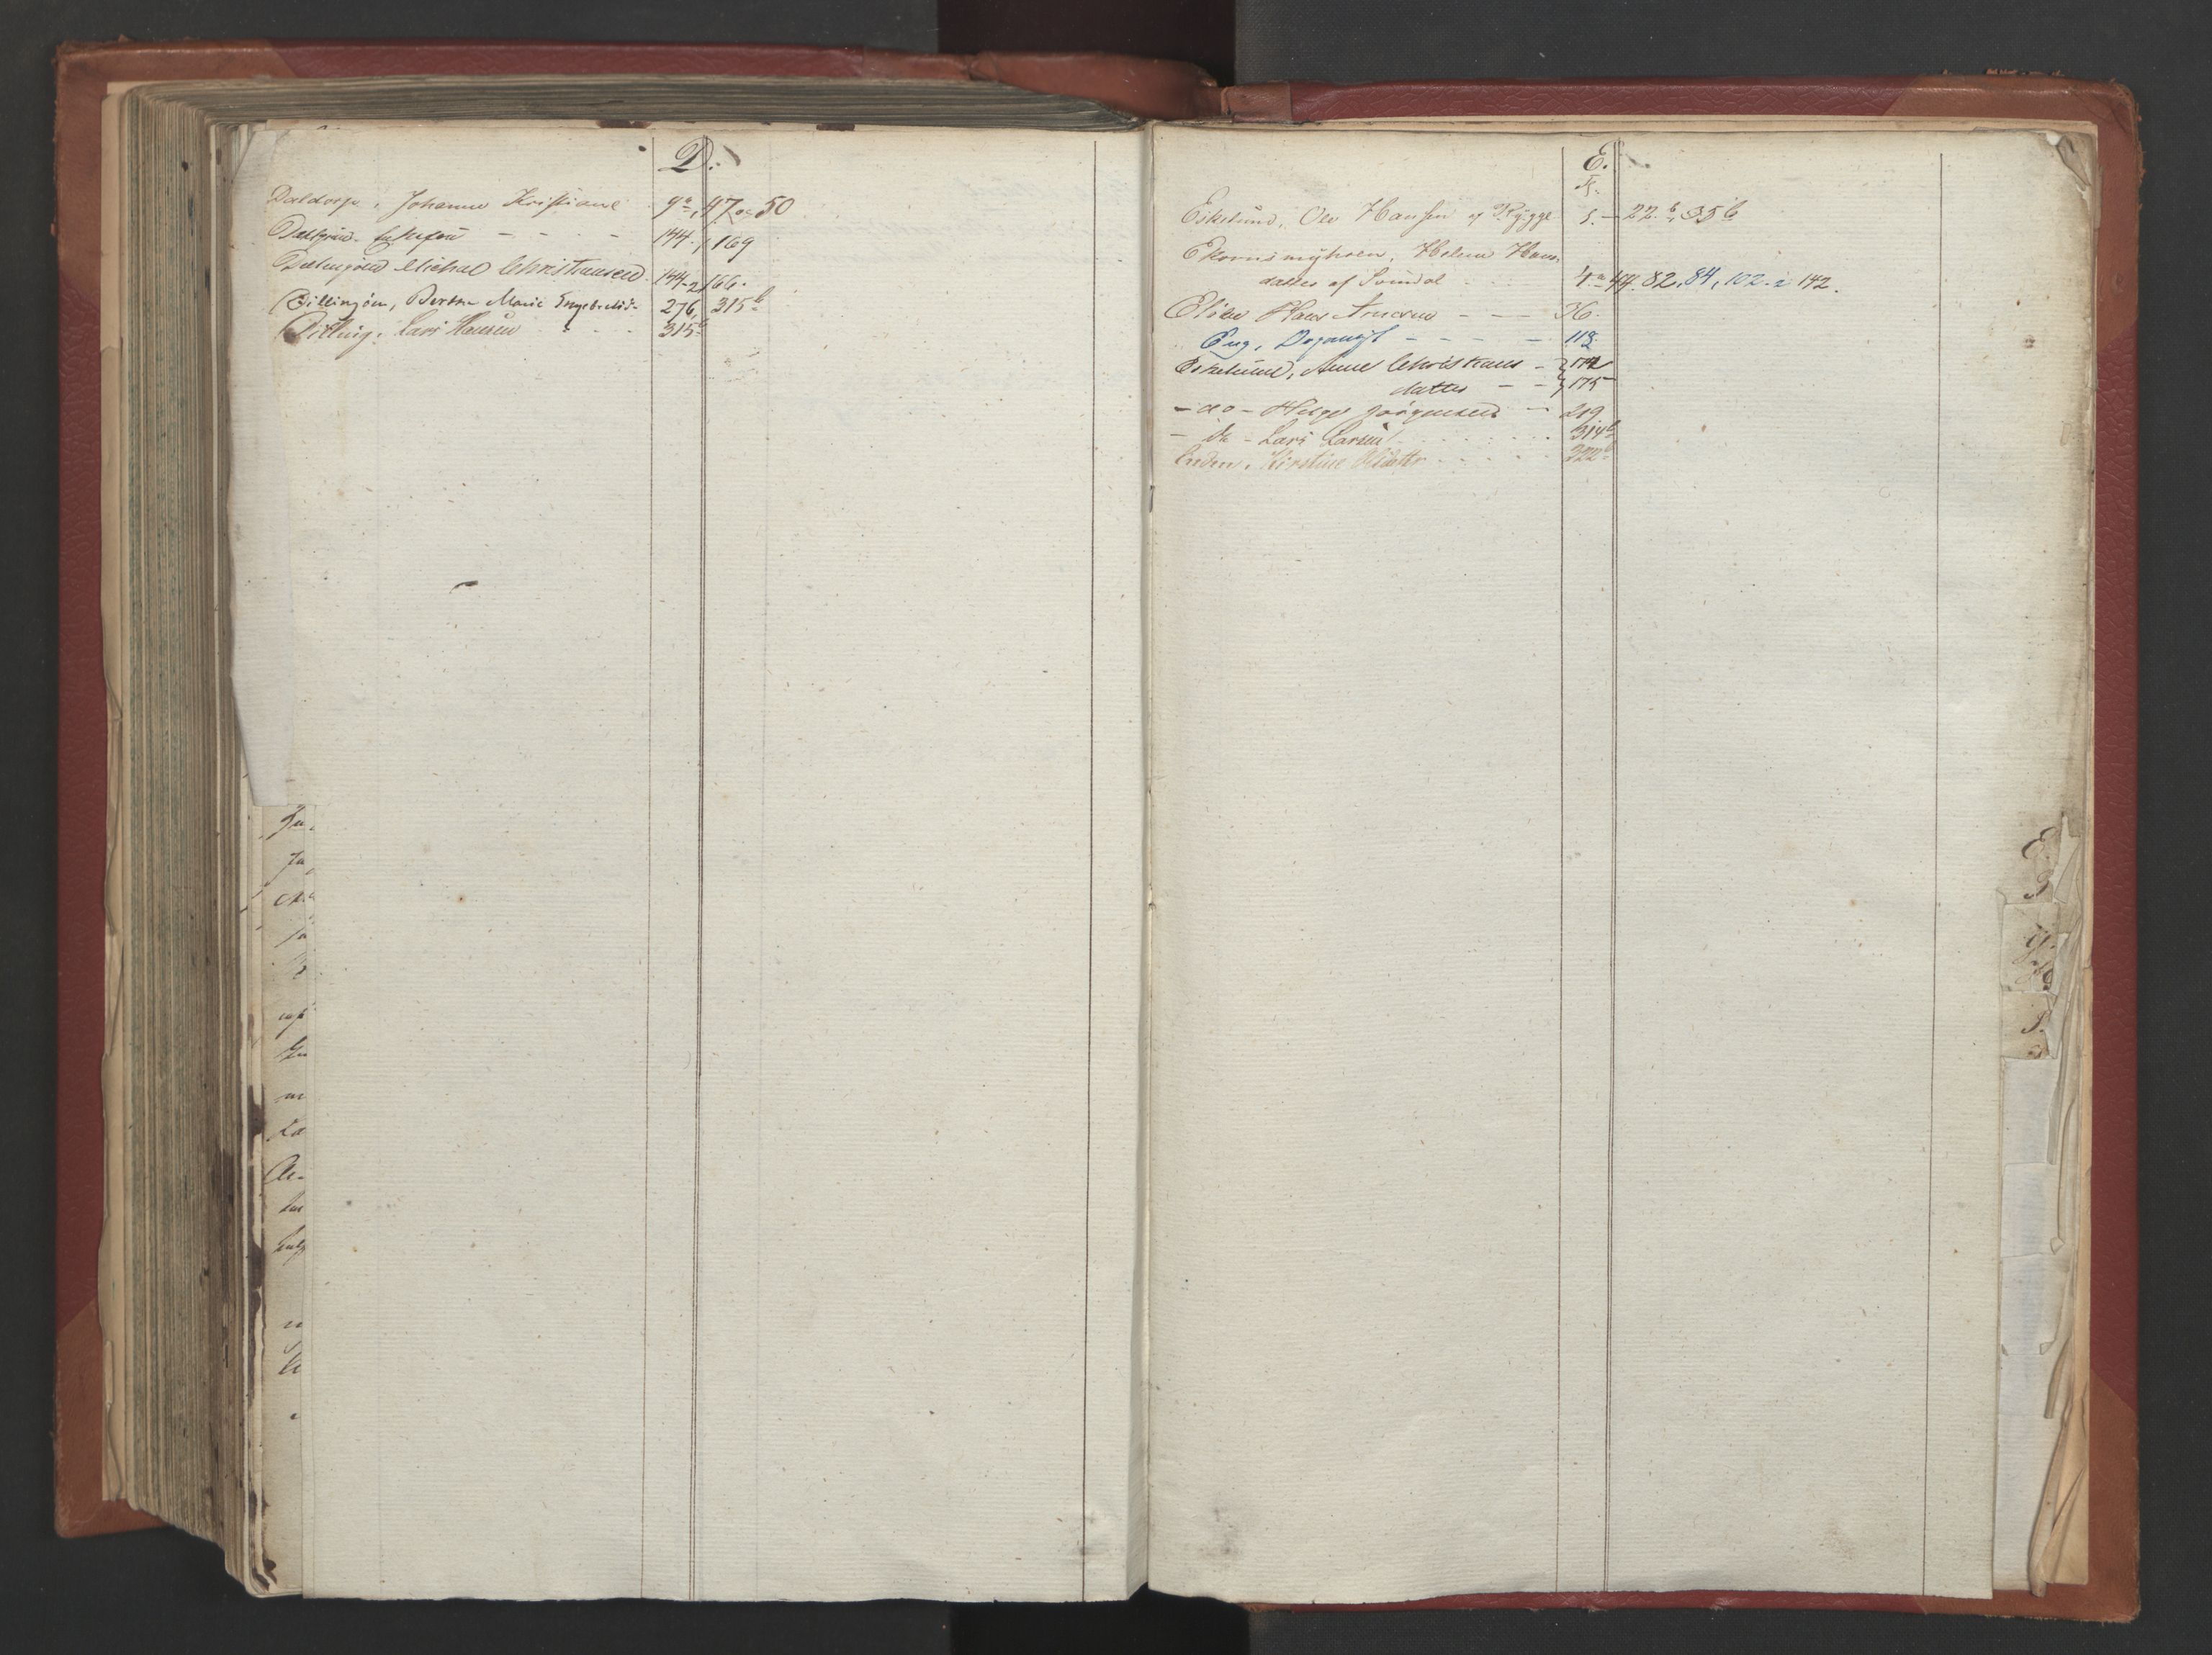 D.
Daldorph, Johanne Kristiane 9a, 47 og 50
Enkefru - - - - 144. 169
Michael Christiansen. 144-2 166.
Dillingöen, Berthe Marie Engebretsd. 276, 315b
Dilling, Lars Hansen - - - 315b
E.
Eskelund, Ole Hansen af Rygge 5. - 22b, 35b
Ekornsmyhren, Helene Hans
datter af Svindal 4a 44. 82, 84, 102. 142.
Hans Arnesen - - - 36.
Eng, - - - - 118
Eskelund, Anne Christians - } 172
datter - - } 175
- do - Helge Jörgensen - 219
- do - Lars Larsen 314b
Enden, Kirstine Olsdattr 322b